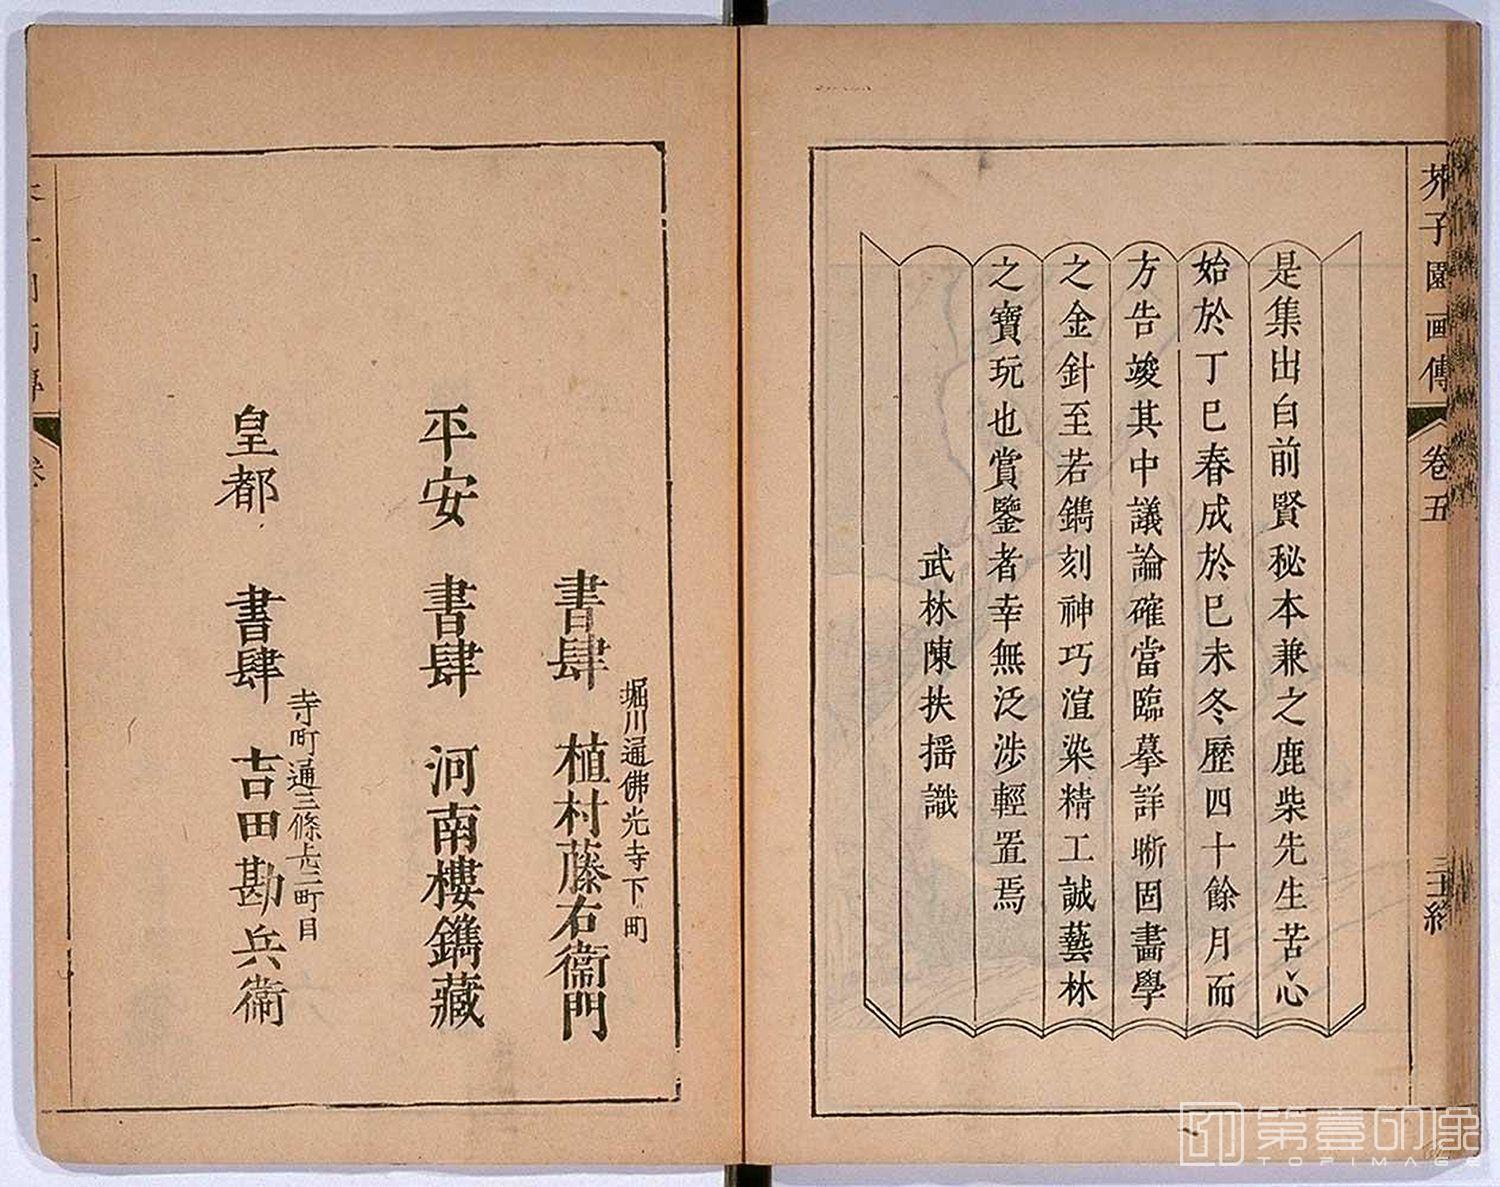 芥子園画傳
卷五
是集出自前賢秘本兼之鹿柴先生苦心
始於丁巳春成於巳未冬歷四十餘月而
方告竣其中議論確當臨摹詳晰固畵學
之金針至若鐫刻神巧渲染精工誠藝林
之寶玩也賞鑒者幸無泛涉輕置焉
武林陳扶搖識
堀川通佛光寺下町
書肆 植村藤右衞門
平安 書肆 河南樓鐫藏
寺町通三條上二町目
皇都 書肆 吉田勘兵衞
第壹印像
TOPIMAGE